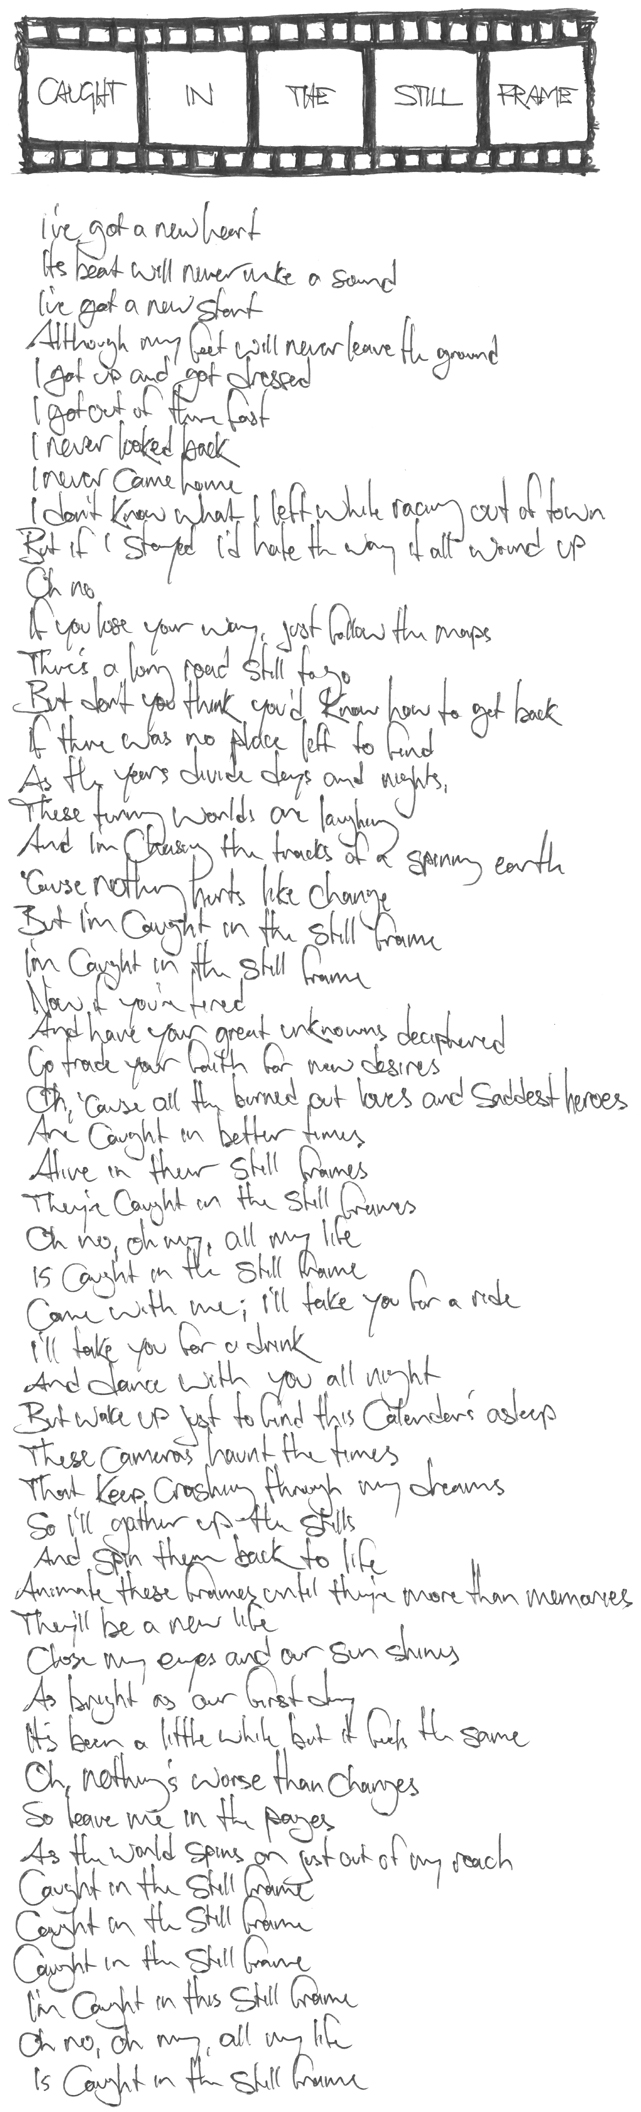 CAUGHT IN THE STILL FRAME
I've got a new heart
Its beat will never make a sound
I've got a new start
Although my feet will never leave the ground
I got up and got dressed
I got out of there fast
I never looked back
I never came home
I don't know what I left while racing out of town
But if I stayed I'd hate the way it all wound up
Oh no
If you lose your way, just follow the maps
There's a long road still to go
But don't you think you'd know how to get back
If there was no place left to find
As the years divide days and nights,
These funny worlds are laughing
And I'm chasing the tracks of a spinning earth
'cause nothing hurts like change
But I'm caught in the still frame
I'm caught in the still frame
Now if you're tired
And have your great unknowns deciphered
Go trade your faith for new desires
Oh, 'cause all the burned out loves and saddest heroes
Are caught in better times
Alive in their still frames
They're caught in the still frames
Oh no, oh my, all my life
Is caught in the still frame
Come with me; I'll take you for a ride
I'll take you for a drink
And dance with you all night
But wake up just to find this calender's asleep
These cameras haunt the times
That keep crashing through my dreams
So I'll gather up the stills
And spin them back to life
Animate these frames until they're more than memories
They'll be a new life
Close my eyes and our sun shines
As bright as our first day
It's been a little while but it feels the same
Oh, nothing's worse than changes
So leave me in the pages
As the world spins on just out of my reach
Caught in the still frame
Caught in the still frame
Caught in the still frame
I'm caught in this still frame
Oh no, oh my, all my life
Is caught in the still frame